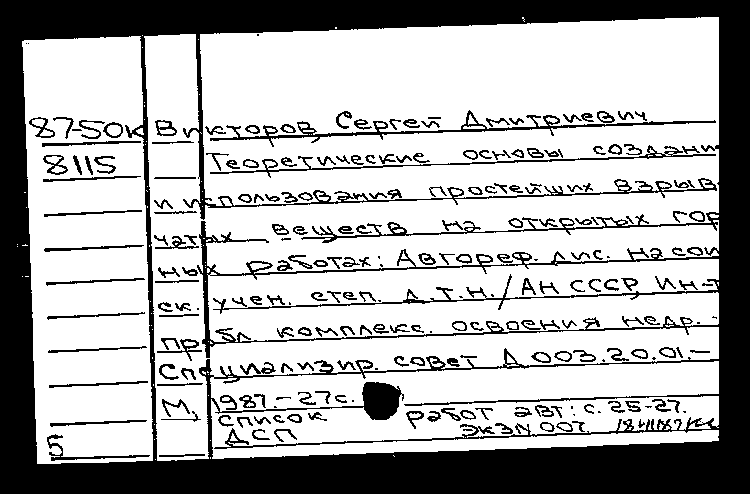 87-50к Викторов, Сергей Дмитриевич
8115 Теоретические основы создани
и использования простейших взрыв
чатых веществ на открытых гор
ных работах: Автореф. дис. на сои
ск. учен. степ. д.т.н./АН СССР, Ин-т
пробл. комплекс. освоения недр. -
Специализир. совет Д 003.20.01.-
М, 1987.- 27с.
список работ авт: с. 25-27.
ДСП экз N 007
5